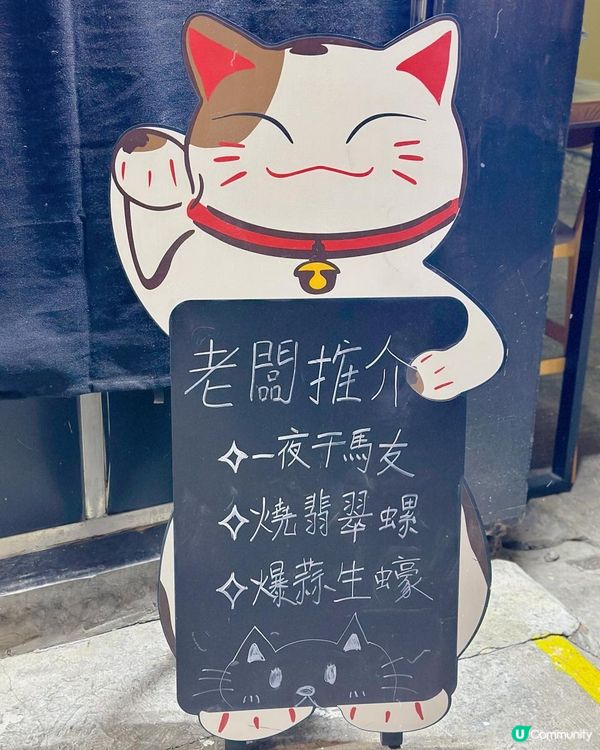 老闆推介
一夜干馬友
燒翡翠螺
爆蒜生蠔
U Community